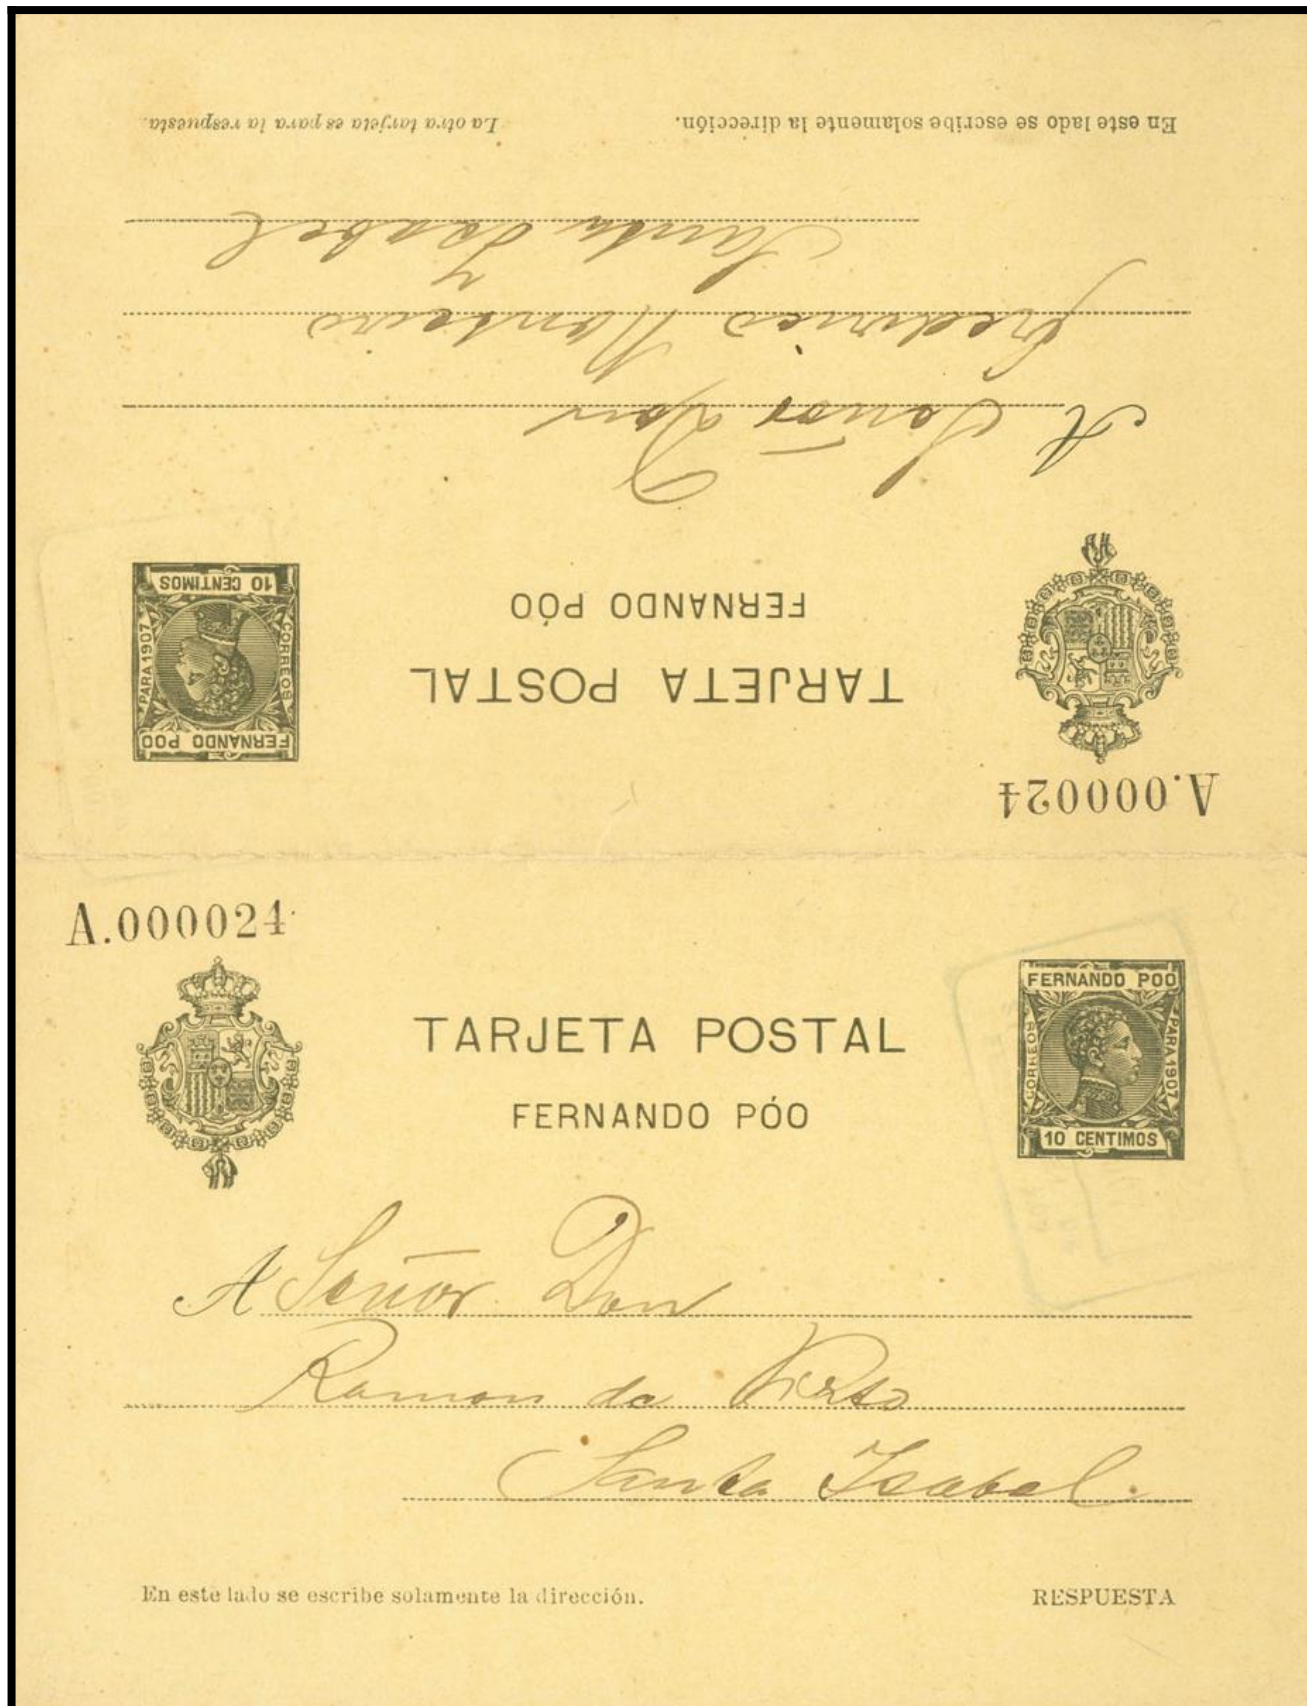 En este lado se escribe solamente la dirección.
La otra tarjeta es para la respuesta.
Santa Isabel
Federico Monteiro
A Señor Don
FERNANDO PÓO
TARJETA POSTAL
10 CENTIMOS
CORREOS
PARA 1907
FERNANDO POO
A.000024
A.000024
TARJETA POSTAL
FERNANDO PÓO
FERNANDO POO
CORREOS
PARA 1907
10 CENTIMOS
A Señor Don
Ramon de
Santa Isabel.
En este lado se escribe solamente la dirección.
RESPUESTA